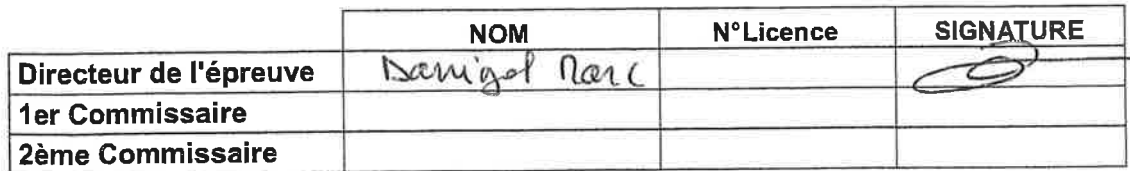 NOM N°Licence SIGNATURE
Directeur de l'épreuve Marc
1er Commissaire
2ème Commissaire